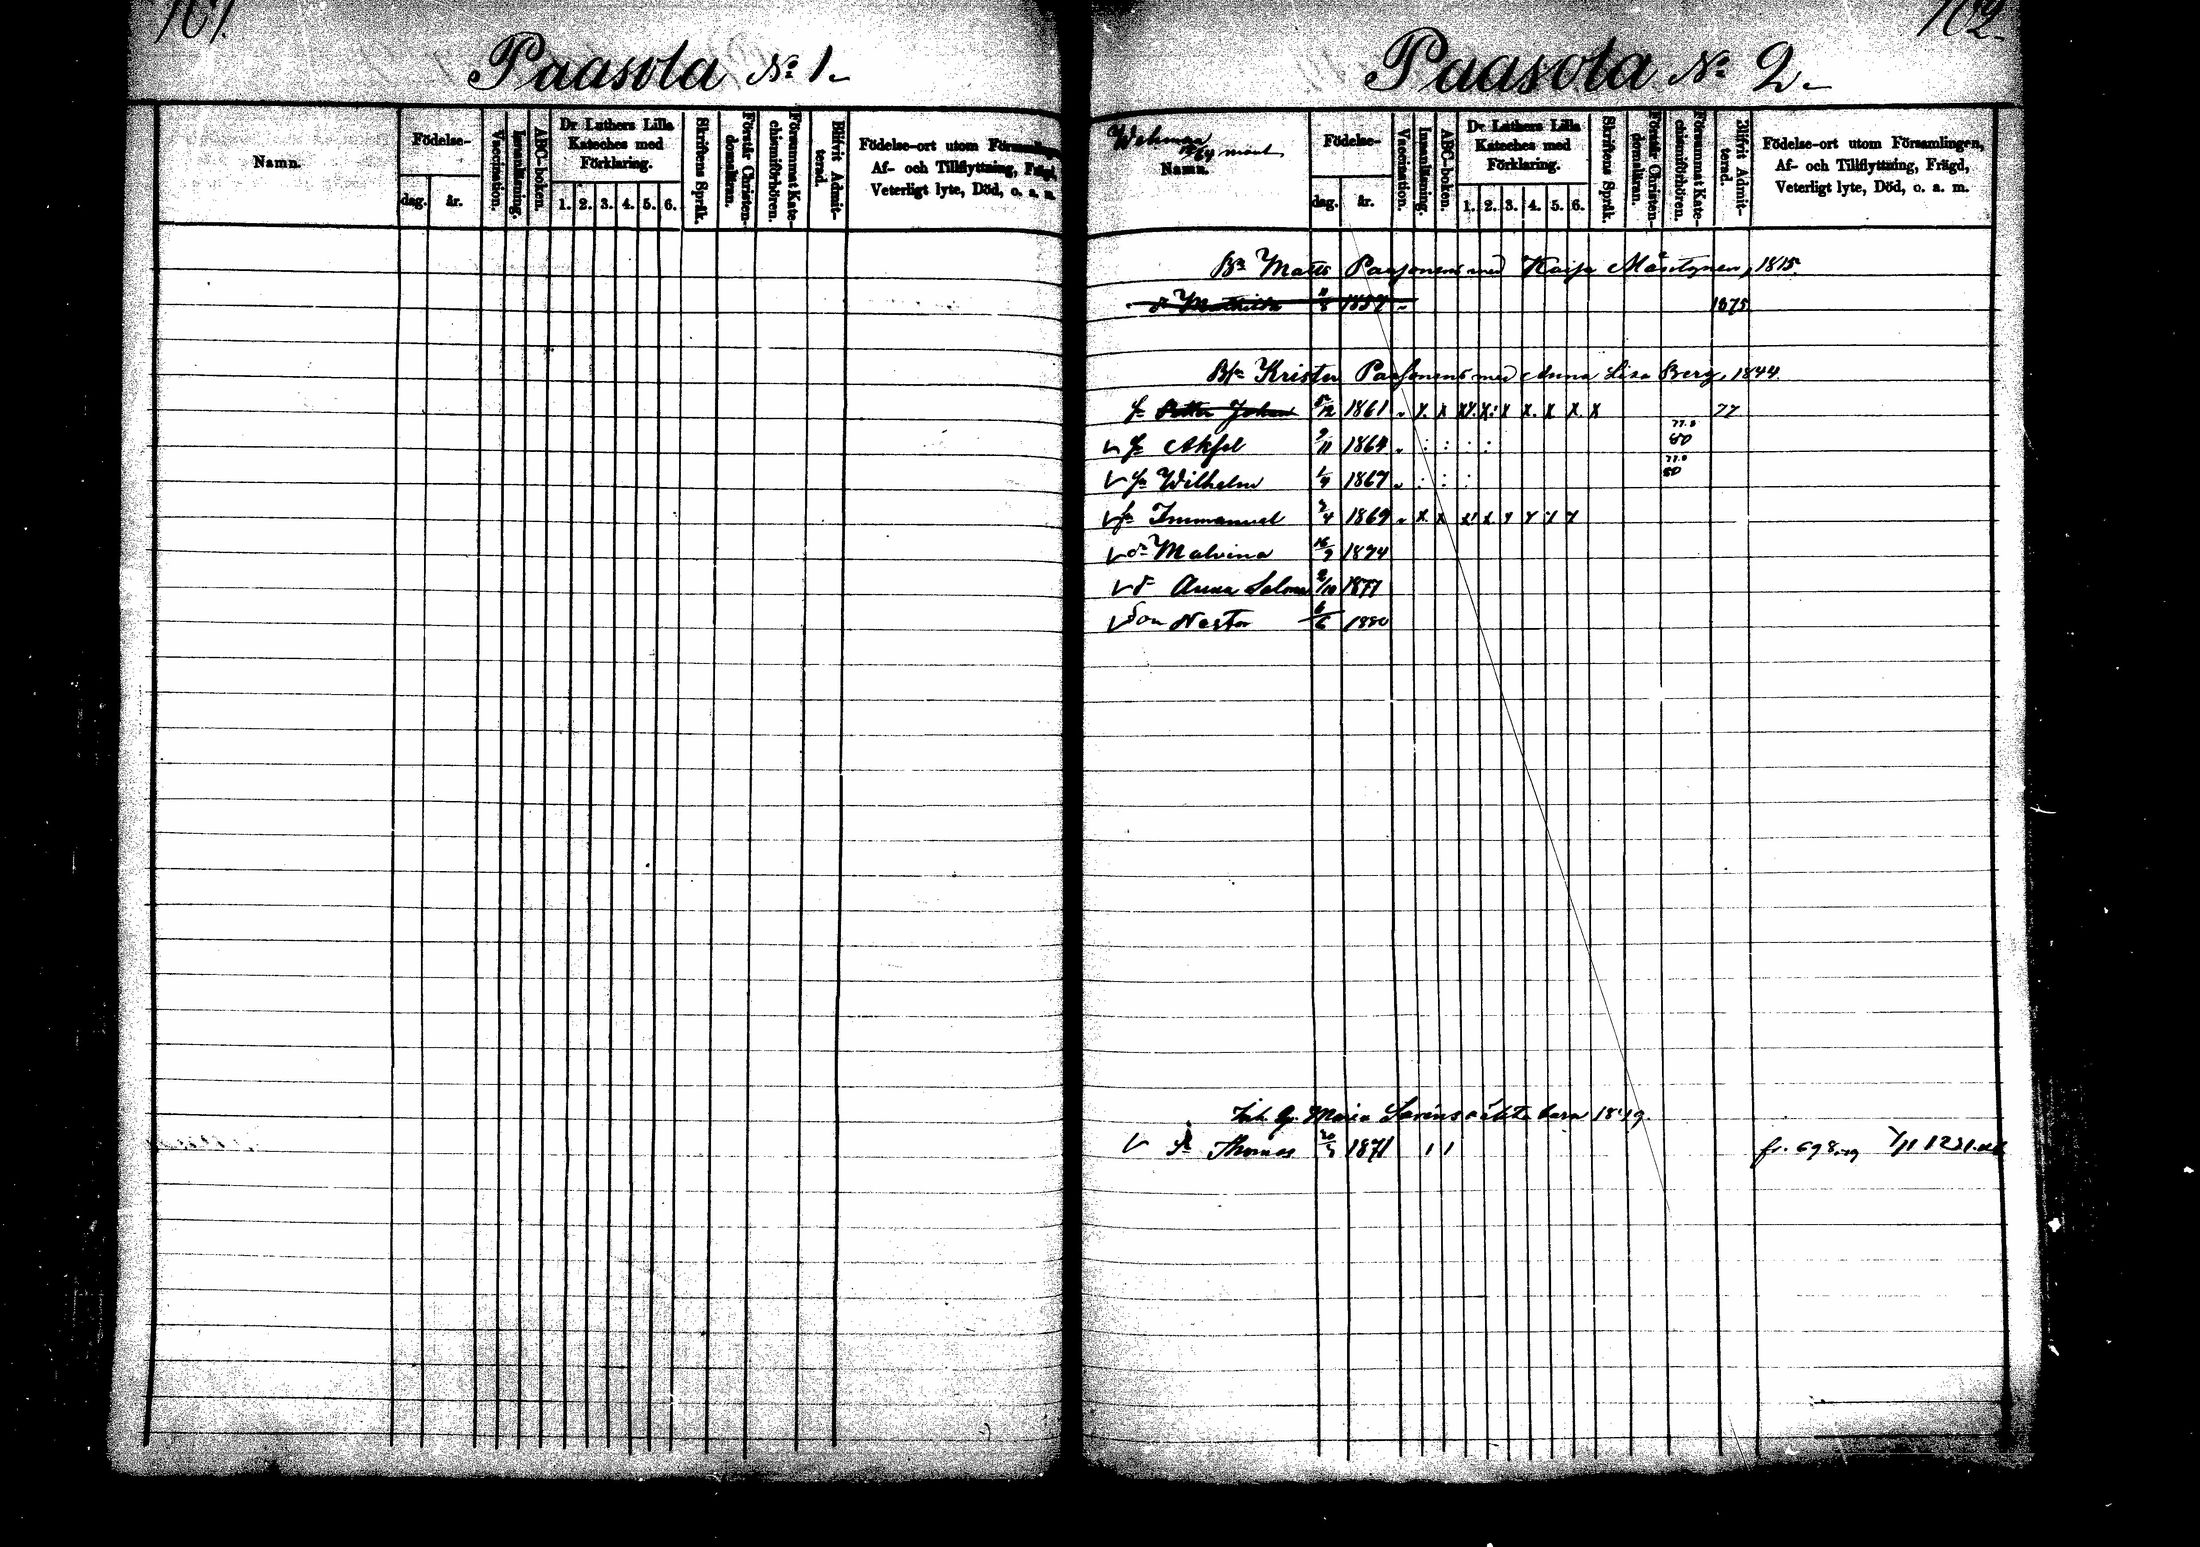 161.
Paasola No 1.
Namn.
Födelse-
dag.
år.
Vaccination.
Innanläsning.
ABC-boken.
Dr Luthers Lilla
Kateches med
Förklaring.
1. 2. 3. 4. 5. 6.
Skriftens Språk.
Förstår Christen-
domsläran.
Försummat Kate-
chismiförhören.
Blifvit Admit-
terad.
Födelse-ort utom Församlingen,
Af- och Tillflyttning, Frägd,
Veterligt lyte, Död, o. a. m.
162.
Paasola No 2.
Namn.
Födelse-
dag.
år.
Vaccination.
Innanläsning.
ABC-boken.
Dr Luthers Lilla
Kateches med
Förklaring.
1. 2. 3. 4. 5. 6.
Skriftens Språk.
Förstår Christen-
domsläran.
Försummat Kate-
chismiförhören.
Blifvit Admit-
terad.
Födelse-ort utom Församlingen,
Af- och Tillflyttning, Frägd,
Veterligt lyte, Död, o. a. m.
Bn Matts Paasonens med Kaisa 1815.
dr Mathilda 1857 1875
Krister Paasonens med Anna Lisa Berg, 1844.
Petter Johan 5/12 1861 x x x x x x x x x 77
Axel 9/11 1864 77.8 80
Wilhelm 1867 77.8 80
Immanuel 2/4 1869 x x x x
dr Malvina 16/9 1874
d Anna Salome 2/10 1877
Son Nestor 6/6 1880
Maria oäkta barn
Thomas 1871 1 1 fr. 698.